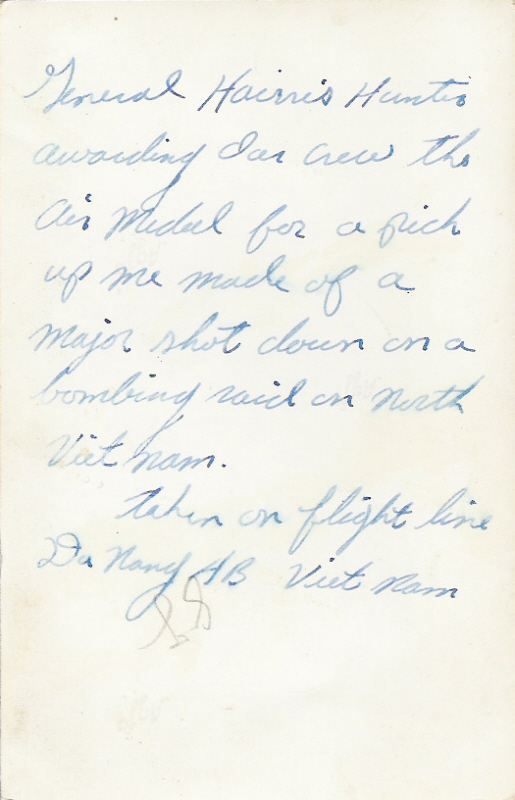 General Hairris Hunter
awarding our crew the
Air Medel for a pick
up we made of a
Major shot down on a
bombing raid on North
Viet nam.
taken on flight line
Da Nang AB Viet nam